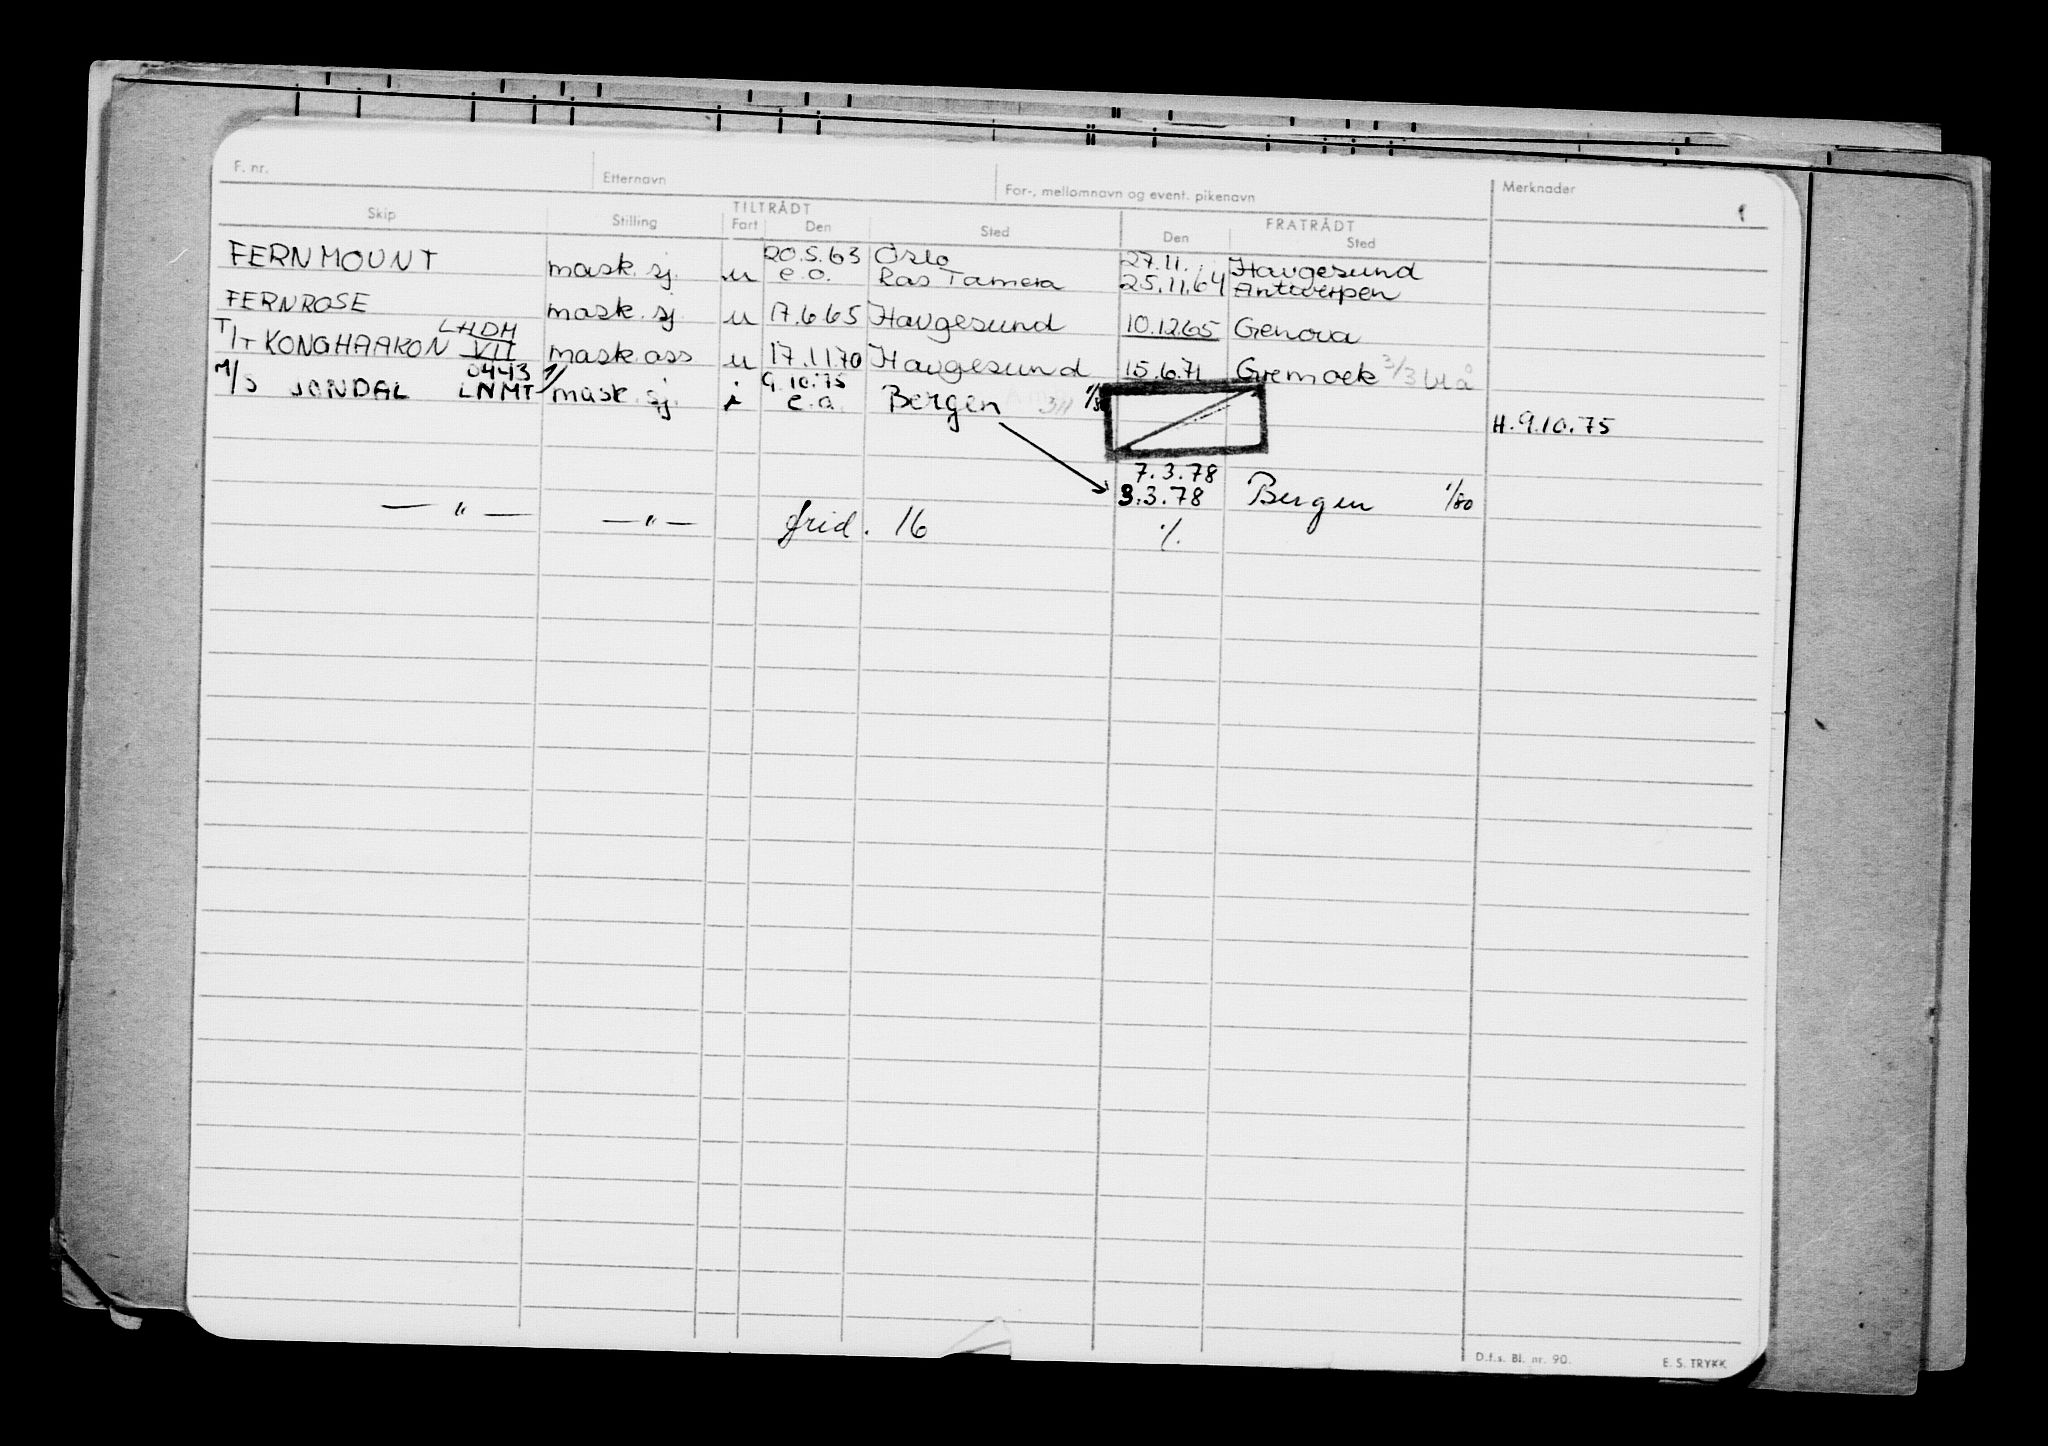 F. nr. Etternavn For-, mellomnavn og event. pikenavn Merknader
TILTRÅDT FRATRÅDT
Skip Stilling Fart Den Sted Den Sted
FERNMOUNT mask. sj. u 20.5.63 Oslo 27.11. Haugesund
e.o. Ras Tamera 25.11.64 Antwerpen
FERNROSE mask. sj. u 17.6.65 Haugesund 10.12.65 Genova
T/T KONG HAAKON VII LHDM mask. ass u 17.1.170 Haugesund 15.6.71 Gremoek 3/3 blå
0443 9.10.75
M/S JONDAL LNMT mask. sj. i e.o. Bergen 3/1 1/80
H. 9.10.75
7.3.78
3.3.78 Bergen 1/80
— " — — " — frid. 16 %
D.f.s. Bl. nr. 90. E. S. TRYKK